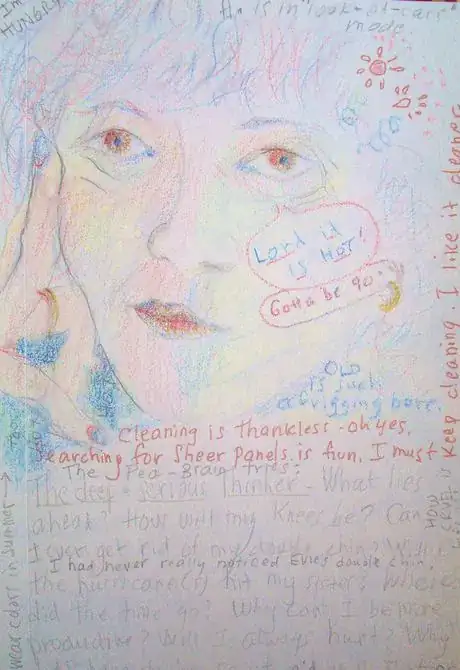 I'm
HUNGRY
He is in "look-at-cars"
mode
Lord it
is HOT!
Gotta be 90.
OLD
is such
a frigging bore.
Cleaning is Thankless - oh yes.
Searching for Sheer Panels is fun. I must
Keep cleaning. I like it cleaner
The Pea-Brain tries:
The deep-serious Thinker - What lies
ahead? How will my Knees be? Can
I ever get rid of my double chin? Will
I had never really noticed Evie's double chin.
the hurricane(s) hit my sister? Where
did the time go? Why can't I be more
productive? Will I always hurt? Why
wear colors in summer
HOT